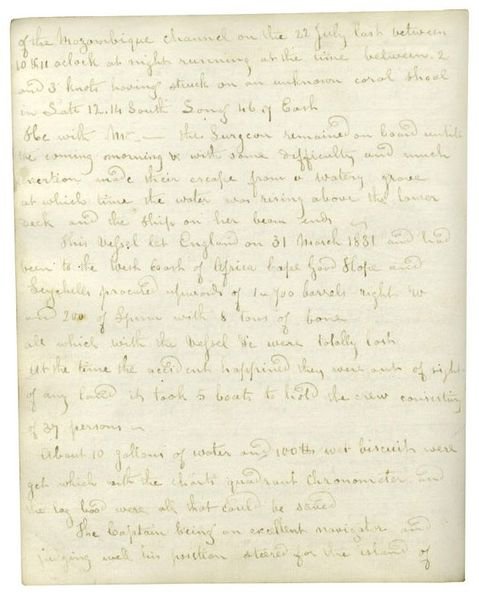 of the Mozambique Channel on the 22 July last between
10 & 11 oclock at night running at the time between 2
and 3 knots having struck on an unknown coral shoal
in Latt 12.14 South Long 46.9 East
He with Mr — the Surgeon remained on board until
the coming morning & with some difficulty and much
exertion made their escape from a watery grave
at which time the water was rising above the lower
deck and the ship on her beam ends
This Vessel let England on 31 March 1831 and had
been to the West Coast of Africa Cape Good Hope and
Seychells procured upwards of 1700 barrels right
and 200 of Sperm with 8 tons of bone
all which with the Vessel &c were totally lost
At the time the accident happined they were out of sight
of any land it took 5 boats to hold the crew consisting
of 37 persons
About 10 gallons of water and 100lbs wet biscuits were
got which with the charts quadrant chronometer and
the log book were all that could be saved
The Captain being an excellent navigator and
judging well his position steered for the island of